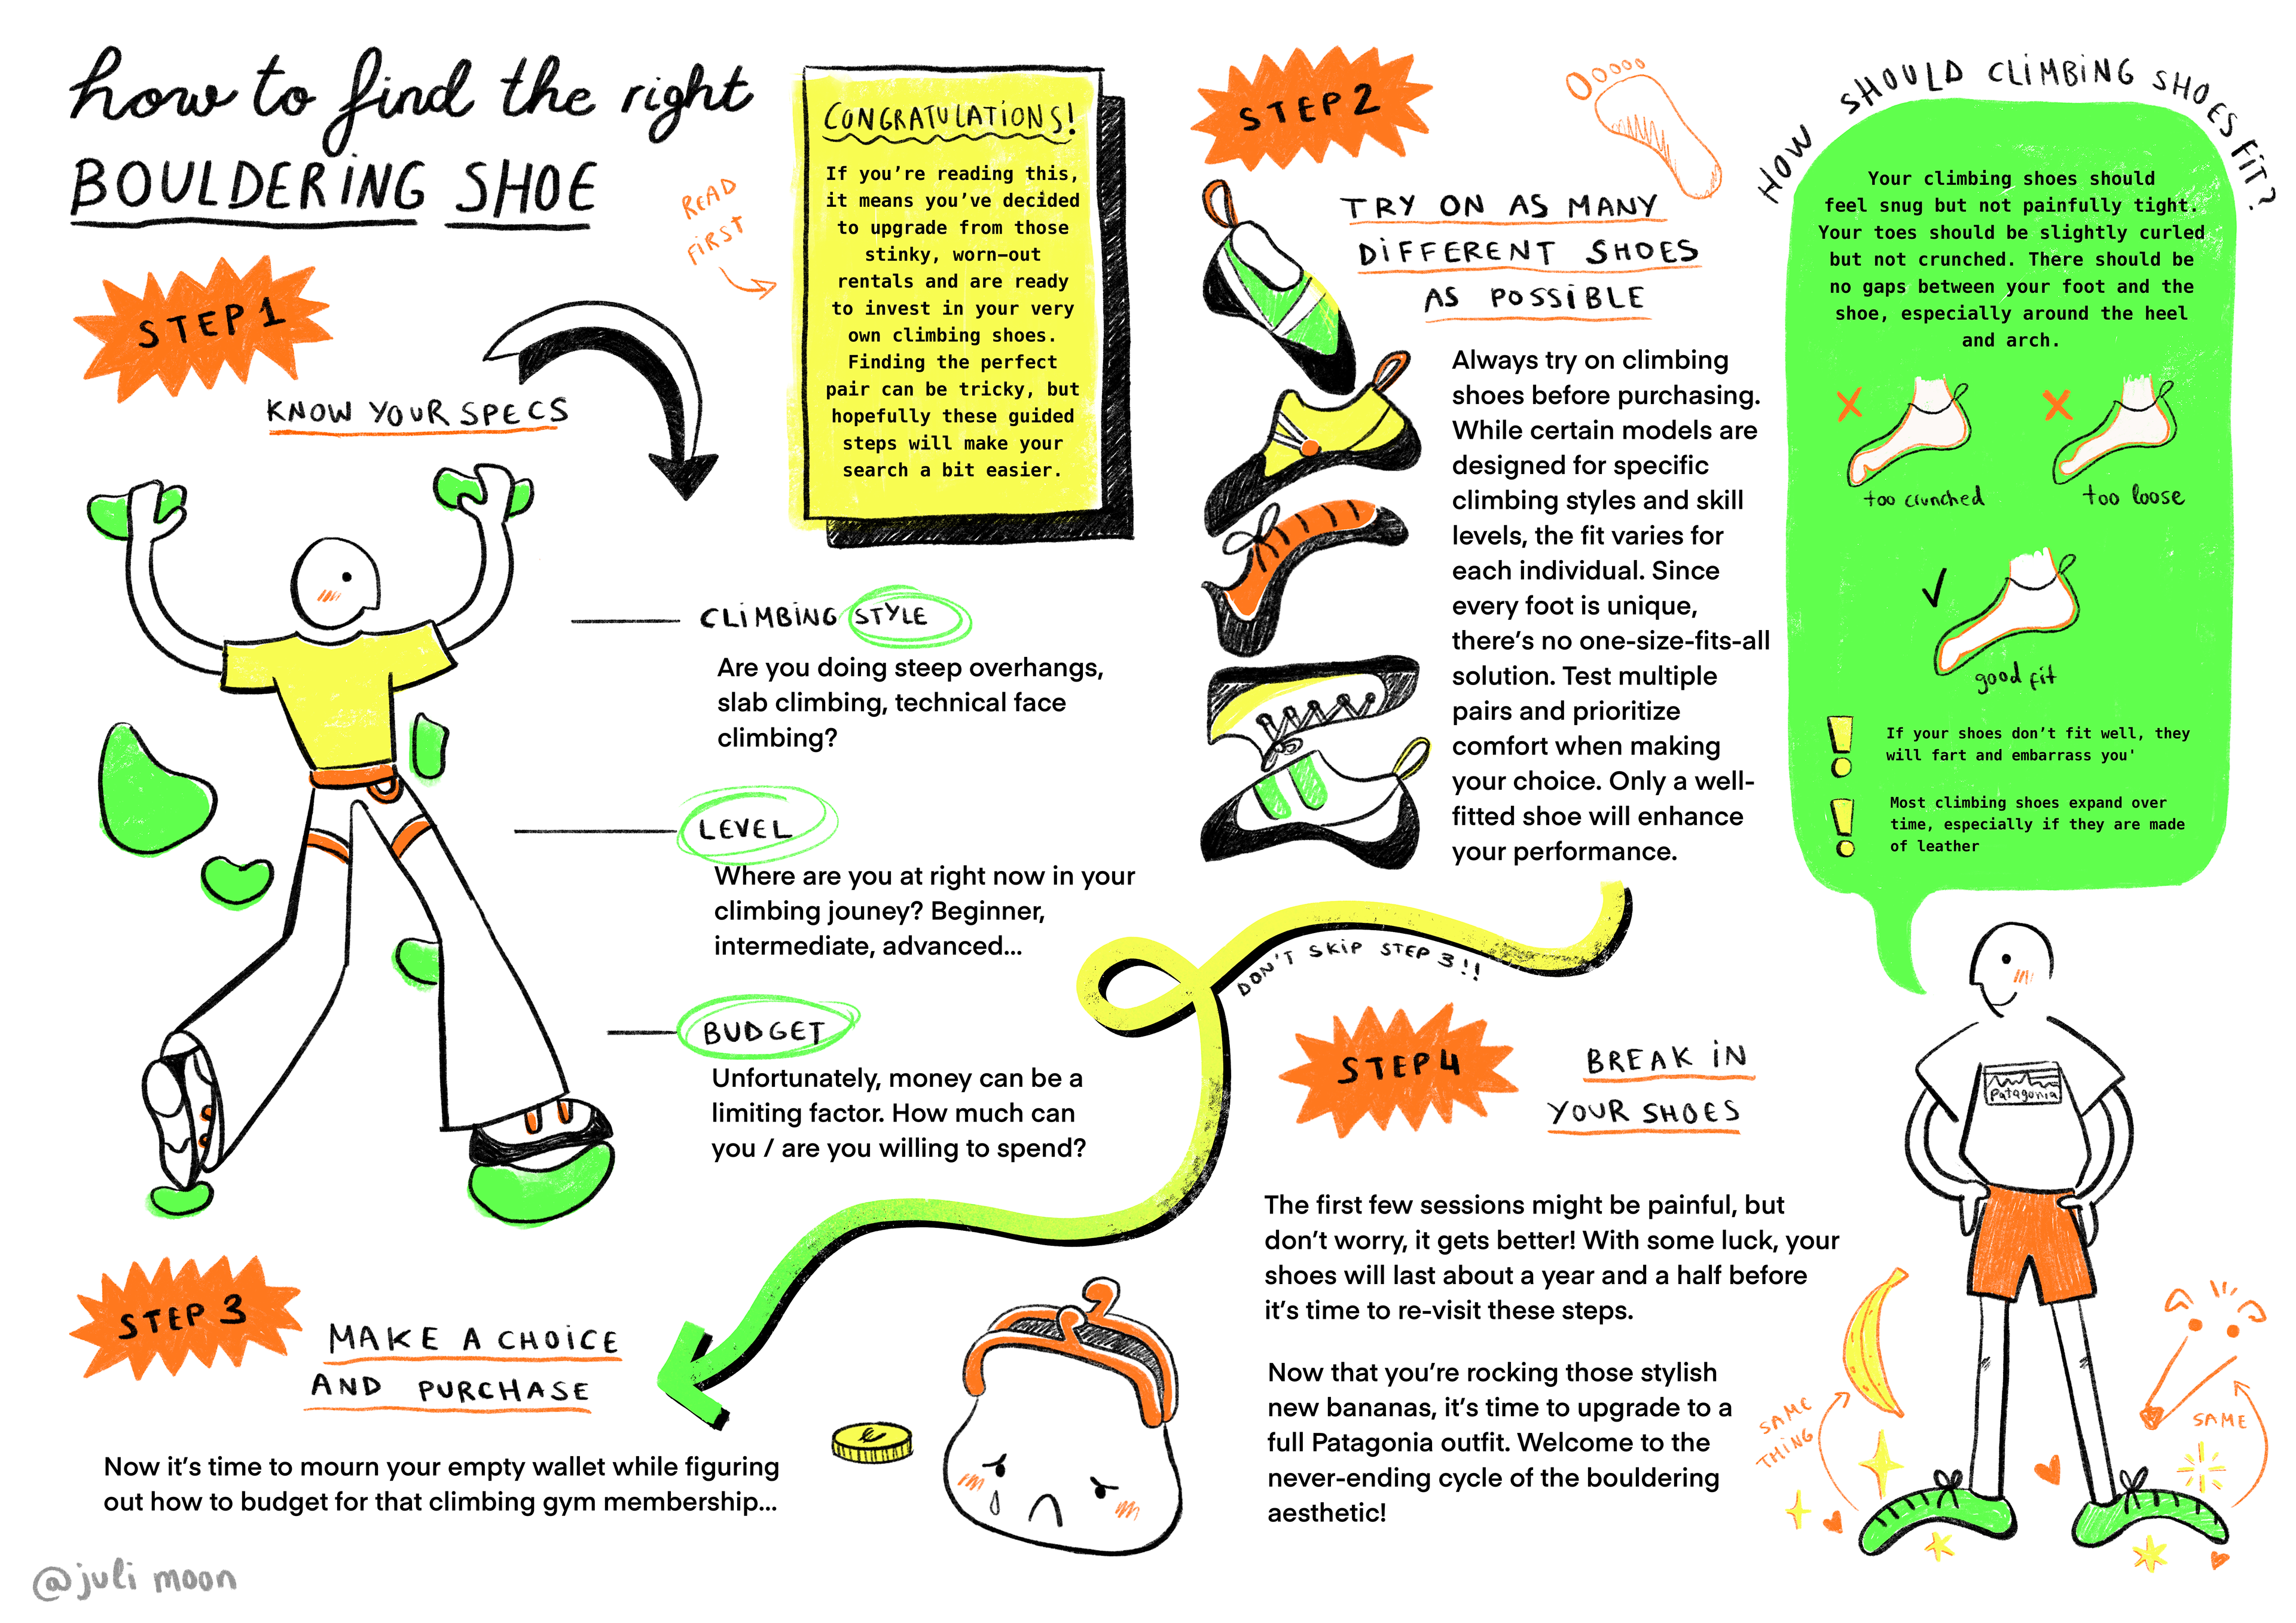 how to find the right
BOULDERING SHOE
READ
FIRST
CONGRATULATIONS!
If you're reading this,
it means you've decided
to upgrade from those
stinky, worn-out
rentals and are ready
to invest in your very
own climbing shoes.
Finding the perfect
pair can be tricky, but
hopefully these guided
steps will make your
search a bit easier.
STEP 1
KNOW YOUR SPECS
CLIMBING STYLE
Are you doing steep overhangs,
slab climbing, technical face
climbing?
LEVEL
Where are you at right now in your
climbing jouney? Beginner,
intermediate, advanced...
BUDGET
Unfortunately, money can be a
limiting factor. How much can
you / are you willing to spend?
STEP 2
TRY ON AS MANY
DIFFERENT SHOES
AS POSSIBLE
Always try on climbing
shoes before purchasing.
While certain models are
designed for specific
climbing styles and skill
levels, the fit varies for
each individual. Since
every foot is unique,
there's no one-size-fits-all
solution. Test multiple
pairs and prioritize
comfort when making
your choice. Only a well-
fitted shoe will enhance
your performance.
HOW SHOULD CLIMBING SHOES FIT?
Your climbing shoes should
feel snug but not painfully tight.
Your toes should be slightly curled
but not crunched. There should be
no gaps between your foot and the
shoe, especially around the heel
and arch.
too crunched
too loose
good fit
If your shoes don't fit well, they
will fart and embarrass you'
Most climbing shoes expand over
time, especially if they are made
of leather
DON'T SKIP STEP 3!!
STEP 3
MAKE A CHOICE
AND PURCHASE
Now it's time to mourn your empty wallet while figuring
out how to budget for that climbing gym membership...
€
STEP 4
BREAK IN
YOUR SHOES
The first few sessions might be painful, but
don't worry, it gets better! With some luck, your
shoes will last about a year and a half before
it's time to re-visit these steps.
Now that you're rocking those stylish
new bananas, it's time to upgrade to a
full Patagonia outfit. Welcome to the
never-ending cycle of the bouldering
aesthetic!
patagonia
SAME
THING
SAME
@juli moon